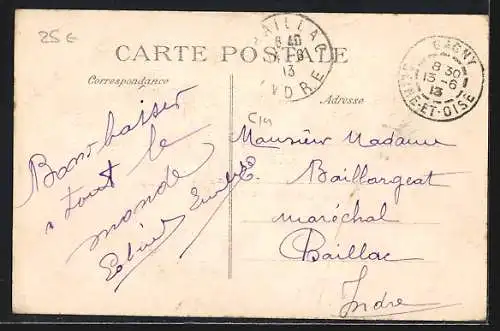 25 €
CARTE POSTALE
Correspondance
Adresse
BAILLAC
8 40
13
INDRE
GAGNY
8 30
13 -6
13
SEINE-ET-OISE
Bons baiser
a tout le
monde
Emile
Monsieur Madame
Baillargeat
maréchal
Baillac
Indre